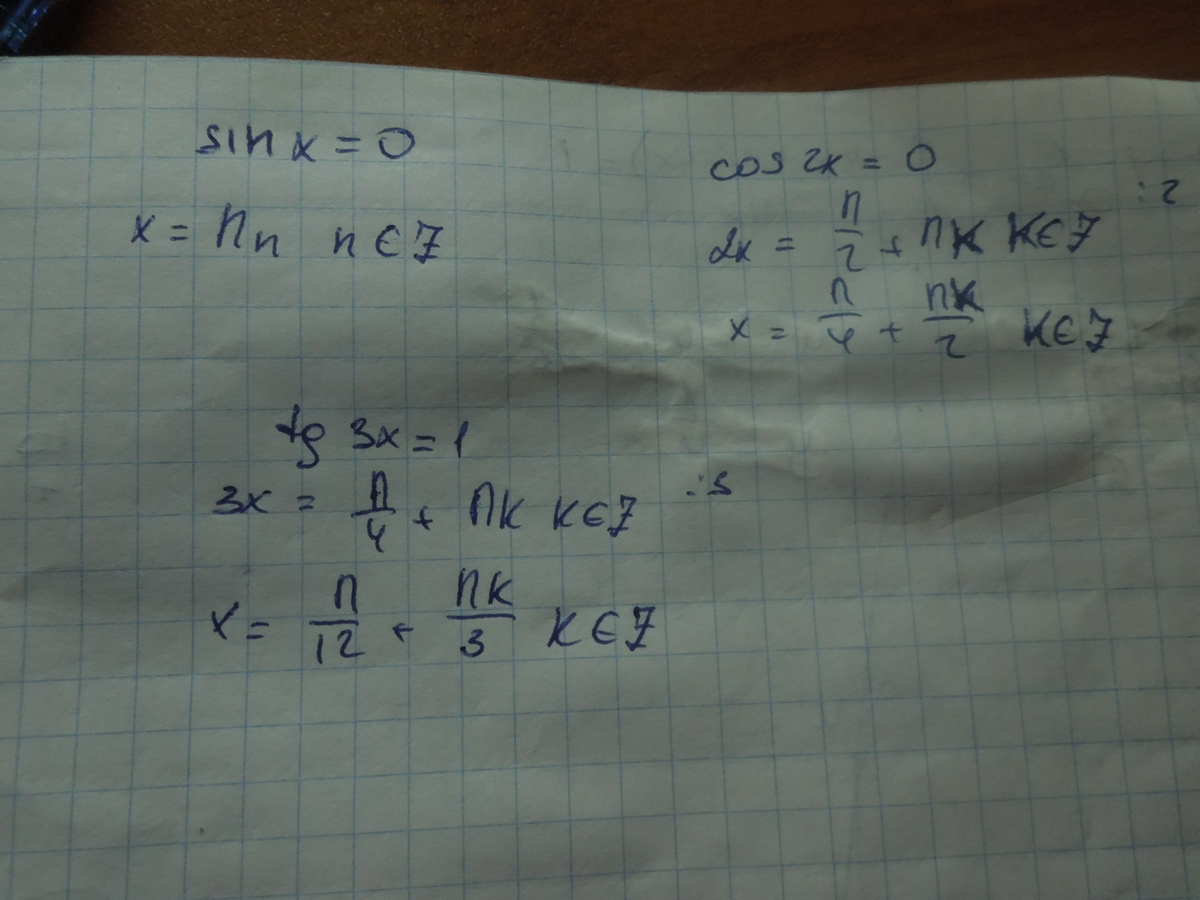 sin x = 0
x = πn n ∈ Z
cos 2x = 0
2x = π/2 + πk k ∈ Z :2
x = π/4 + πk/2 k ∈ Z
tg 3x = 1
3x = π/4 + πk k ∈ Z :3
x = π/12 + πk/3 k ∈ Z